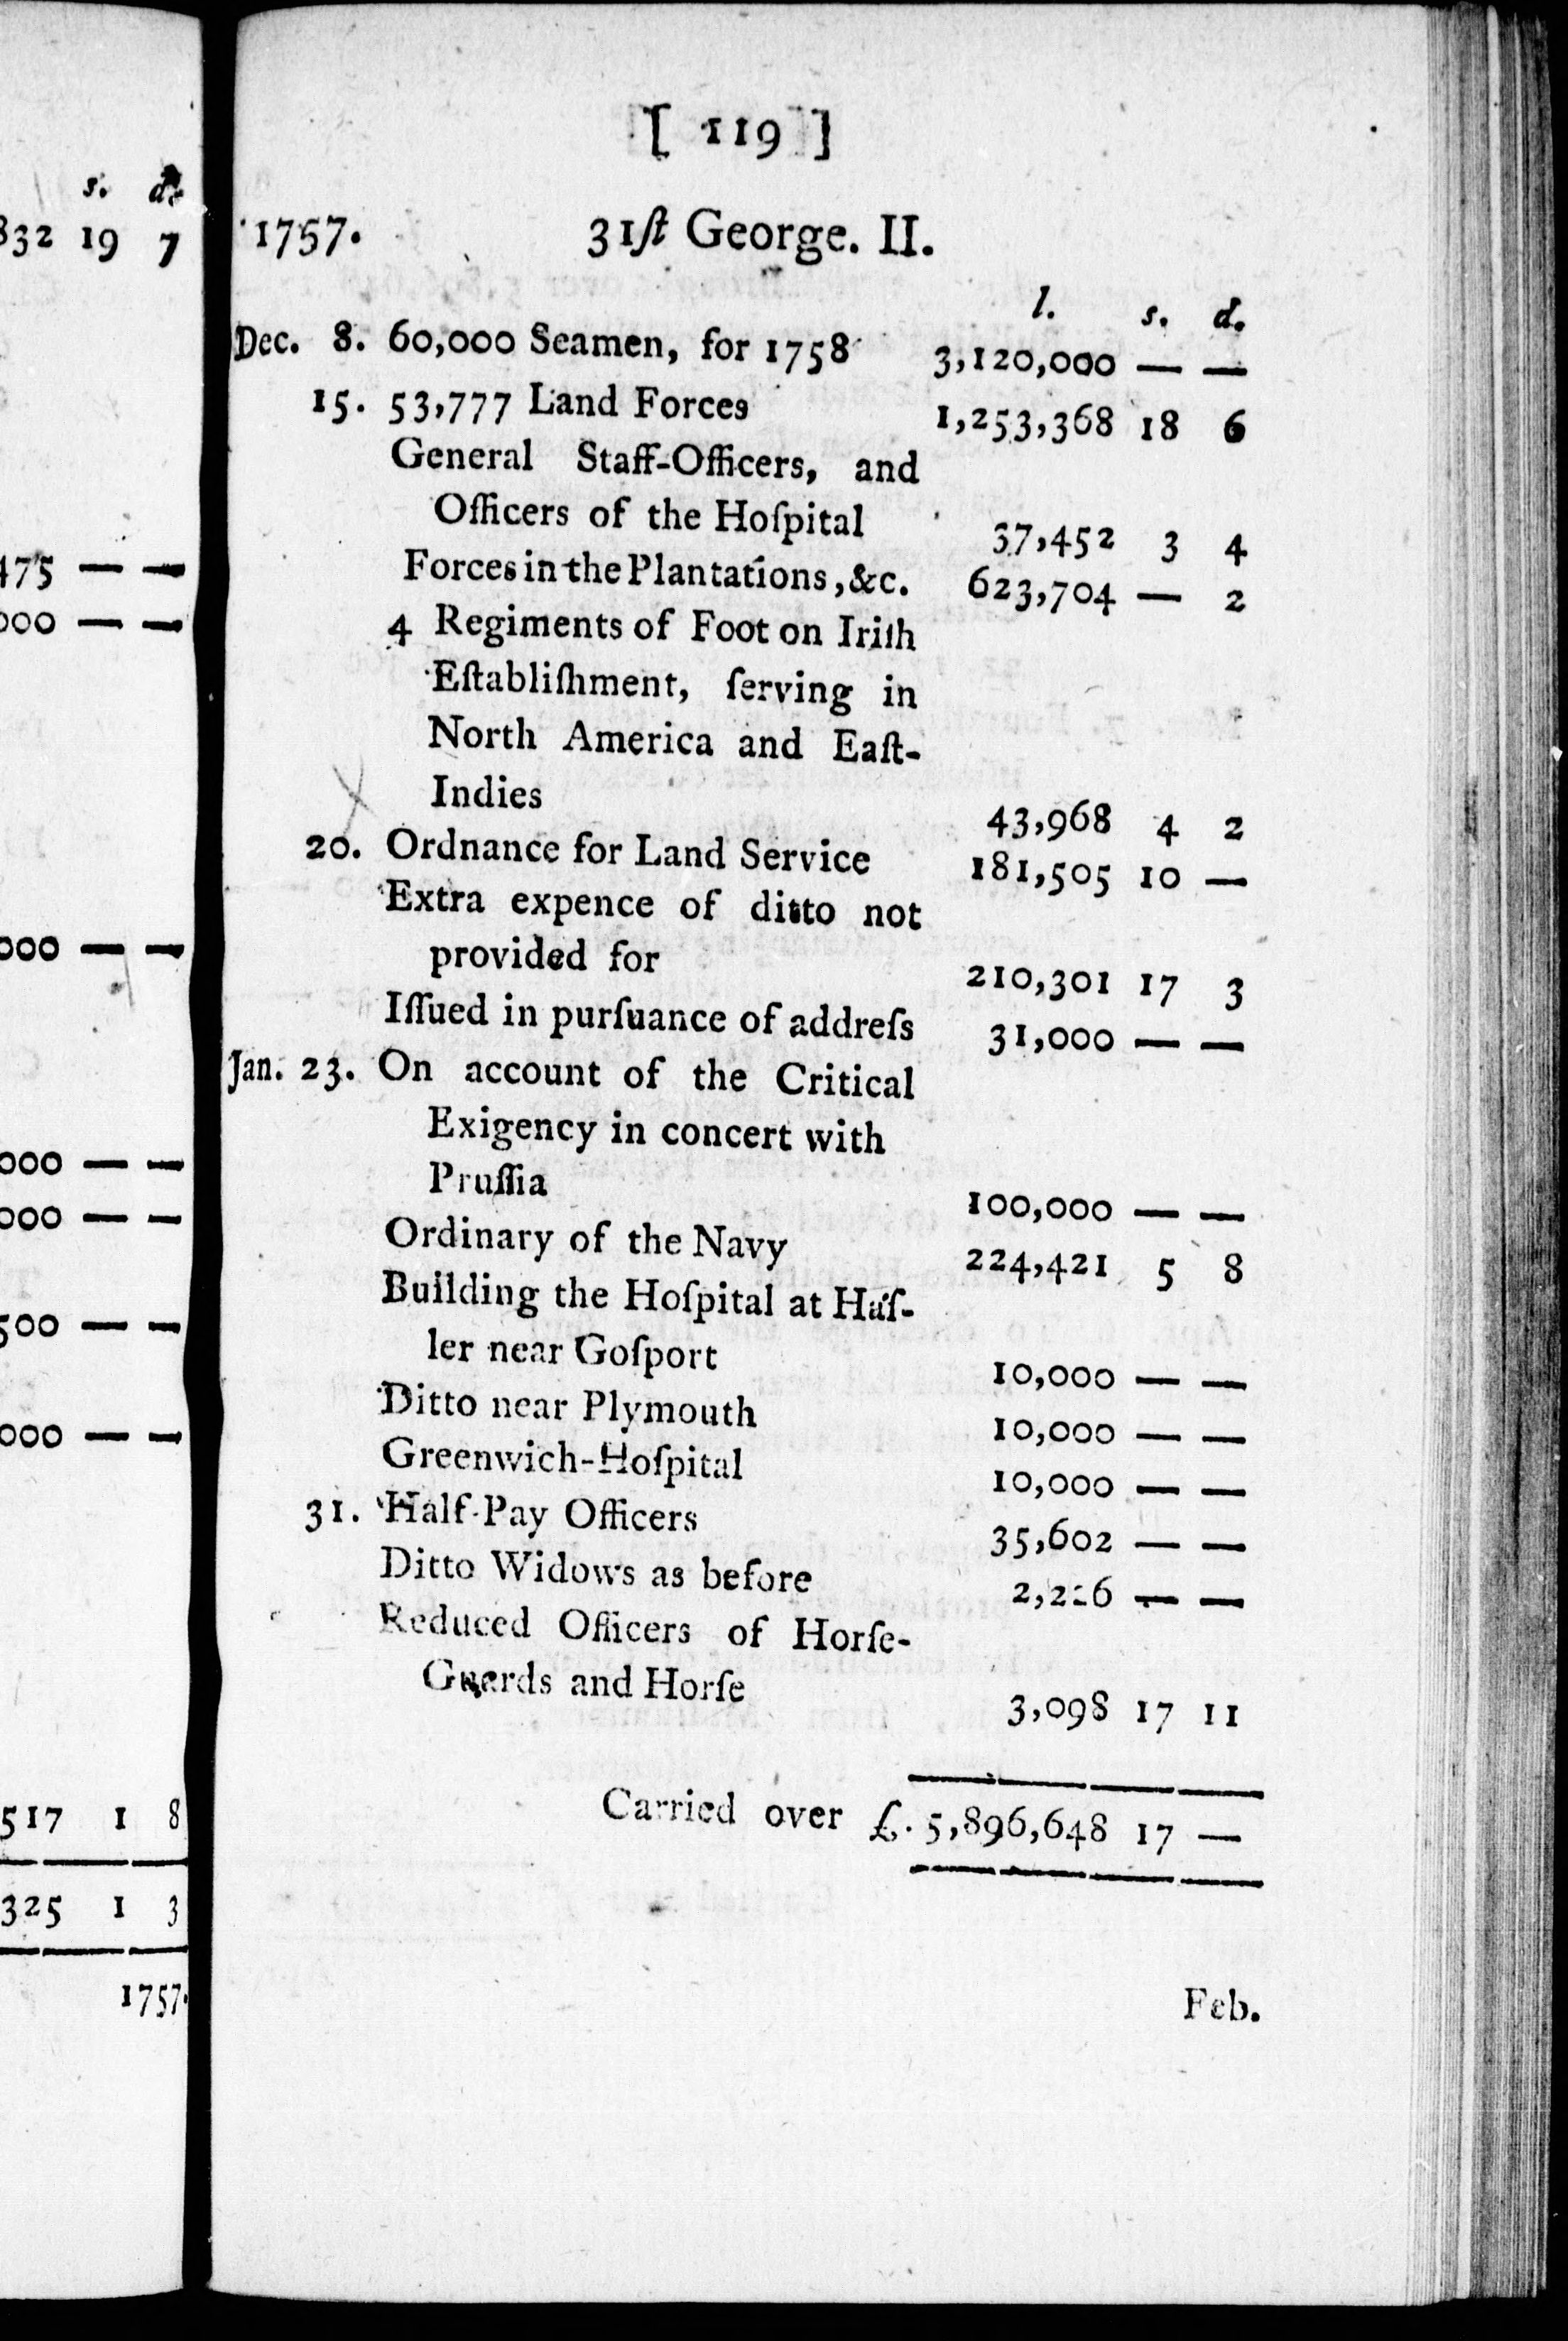 s. d.
832 19 7
475 — —
000 — —
000 — —
000 — —
000 — —
500 — —
000 — —
517 1 8
325 1 3
1757.
[ 119 ]
1757. 31ſt George. II.
l. s. d.
Dec. 8. 60,000 Seamen, for 1758 3,120,000 — —
15. 53,777 Land Forces 1,253,368 18 6
General Staff-Officers, and
Officers of the Hoſpital 37,452 3 4
Forces in the Plantations, &c. 623,704 — 2
4 Regiments of Foot on Iriſh
Eſtabliſhment, ſerving in
North America and Eaſt-
Indies 43,968 4 2
20. Ordnance for Land Service 181,505 10 —
Extra expence of ditto not
provided for 210,301 17 3
Iſſued in purſuance of addreſs 31,000 — —
Jan. 23. On account of the Critical
Exigency in concert with
Pruſſia 100,000 — —
Ordinary of the Navy 224,421 5 8
Building the Hoſpital at Haſ-
ler near Goſport 10,000 — —
Ditto near Plymouth 10,000 — —
Greenwich-Hoſpital 10,000 — —
31. Half-Pay Officers 35,602 — —
Ditto Widows as before 2,226 — —
Reduced Officers of Horſe-
Guards and Horſe 3,098 17 11
Carried over £. 5,896,648 17 —
Feb.